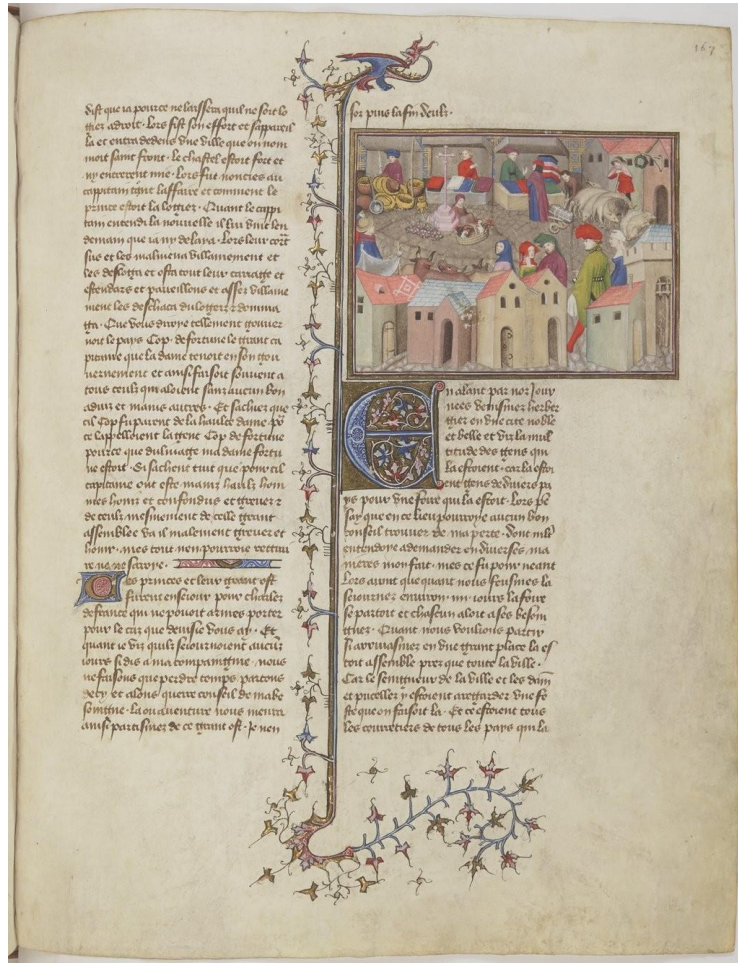 167
dist que ia pource ne laissera quil ne soit lo
gier adroit. Lors fist son effort et sappareil
la et entra dedens une ville que on nom
moit saint front. le chastel estoit fort et
ny entrerent mie. Lors fut noncies au
cappitain tout laffaire et comment le
prince estoit la logier. Quant le cappi
tain entendi la nouvelle il lui vint len
demain que ia ny delaia. Lors leur court
sus et les malmena villainement et
les desloga et osta tout leur carriage et
estendars et paveillons et assez villaine
ment les deschaca du logeiz
Que vous diroye tellement gouver
noit le pays Cop de fortune le grant ca
pitaine que la dame tenoit en son gou
vernement et ainsi faisoit souvent a
tous ceulx qui aloient sans aucun bon
adviz et mains autres. Et sachiez que
cil Cop fu parent de la haulte dame po
ce lappelloient la gent Cop de fortune
pource que du linage ma dame fortu
ne estoit. Si sachent tuit que pour cil
capitaine ont este maint haulx hom
mes honiz et confondus et grevez et
de ceulx mesmement de celle grant
assemblee va il malement grever et
honir. mes tout nen pourroie
ne ne saroye.
Ces princes et leur grant ost
furent en sejour pour challez
de france qui ne pouoit armes porter
pour le cas que devisie vous ay. Et
quant ie viz quilz seiournoient aucuns
iours si dis a ma compaingnie. nous
ne faisons que perdre temps partons
de cy et alons querre conseil de ma be
soingne. la ou aventure nous menra
ainsi partismez de ce grant ost. Je nen
soz puis la fin deulx.
En alant par noz jour
nees venismez herber
gier en une cite noble
et belle et viz la mul
titude des gens qui
la estoient. car la estoi
ent gens de divers pa
ys pour une foire qui la estoit. Lors pe
say que en ce lieu pourroye aucun bon
conseil trouver de ma perte. dont mlt
entendoye a demander en diverses ma
nieres mon fait. mes ce fu pour neant
Lors avint que quant nous feusmes la
seiourner environ .iiii. iours la foire
se partoit et chascun aloit a ses besoin
gnes. Quant nous voulions partir
si arrivasmez en une grant place la es
toit assemble prez que toute la ville.
Car le seingneur de la ville et les dam
et pucellez y estoient a regarder une fe
ste que on faisoit la. Et ce estoient tous
les courretiers de tous les pays qui la